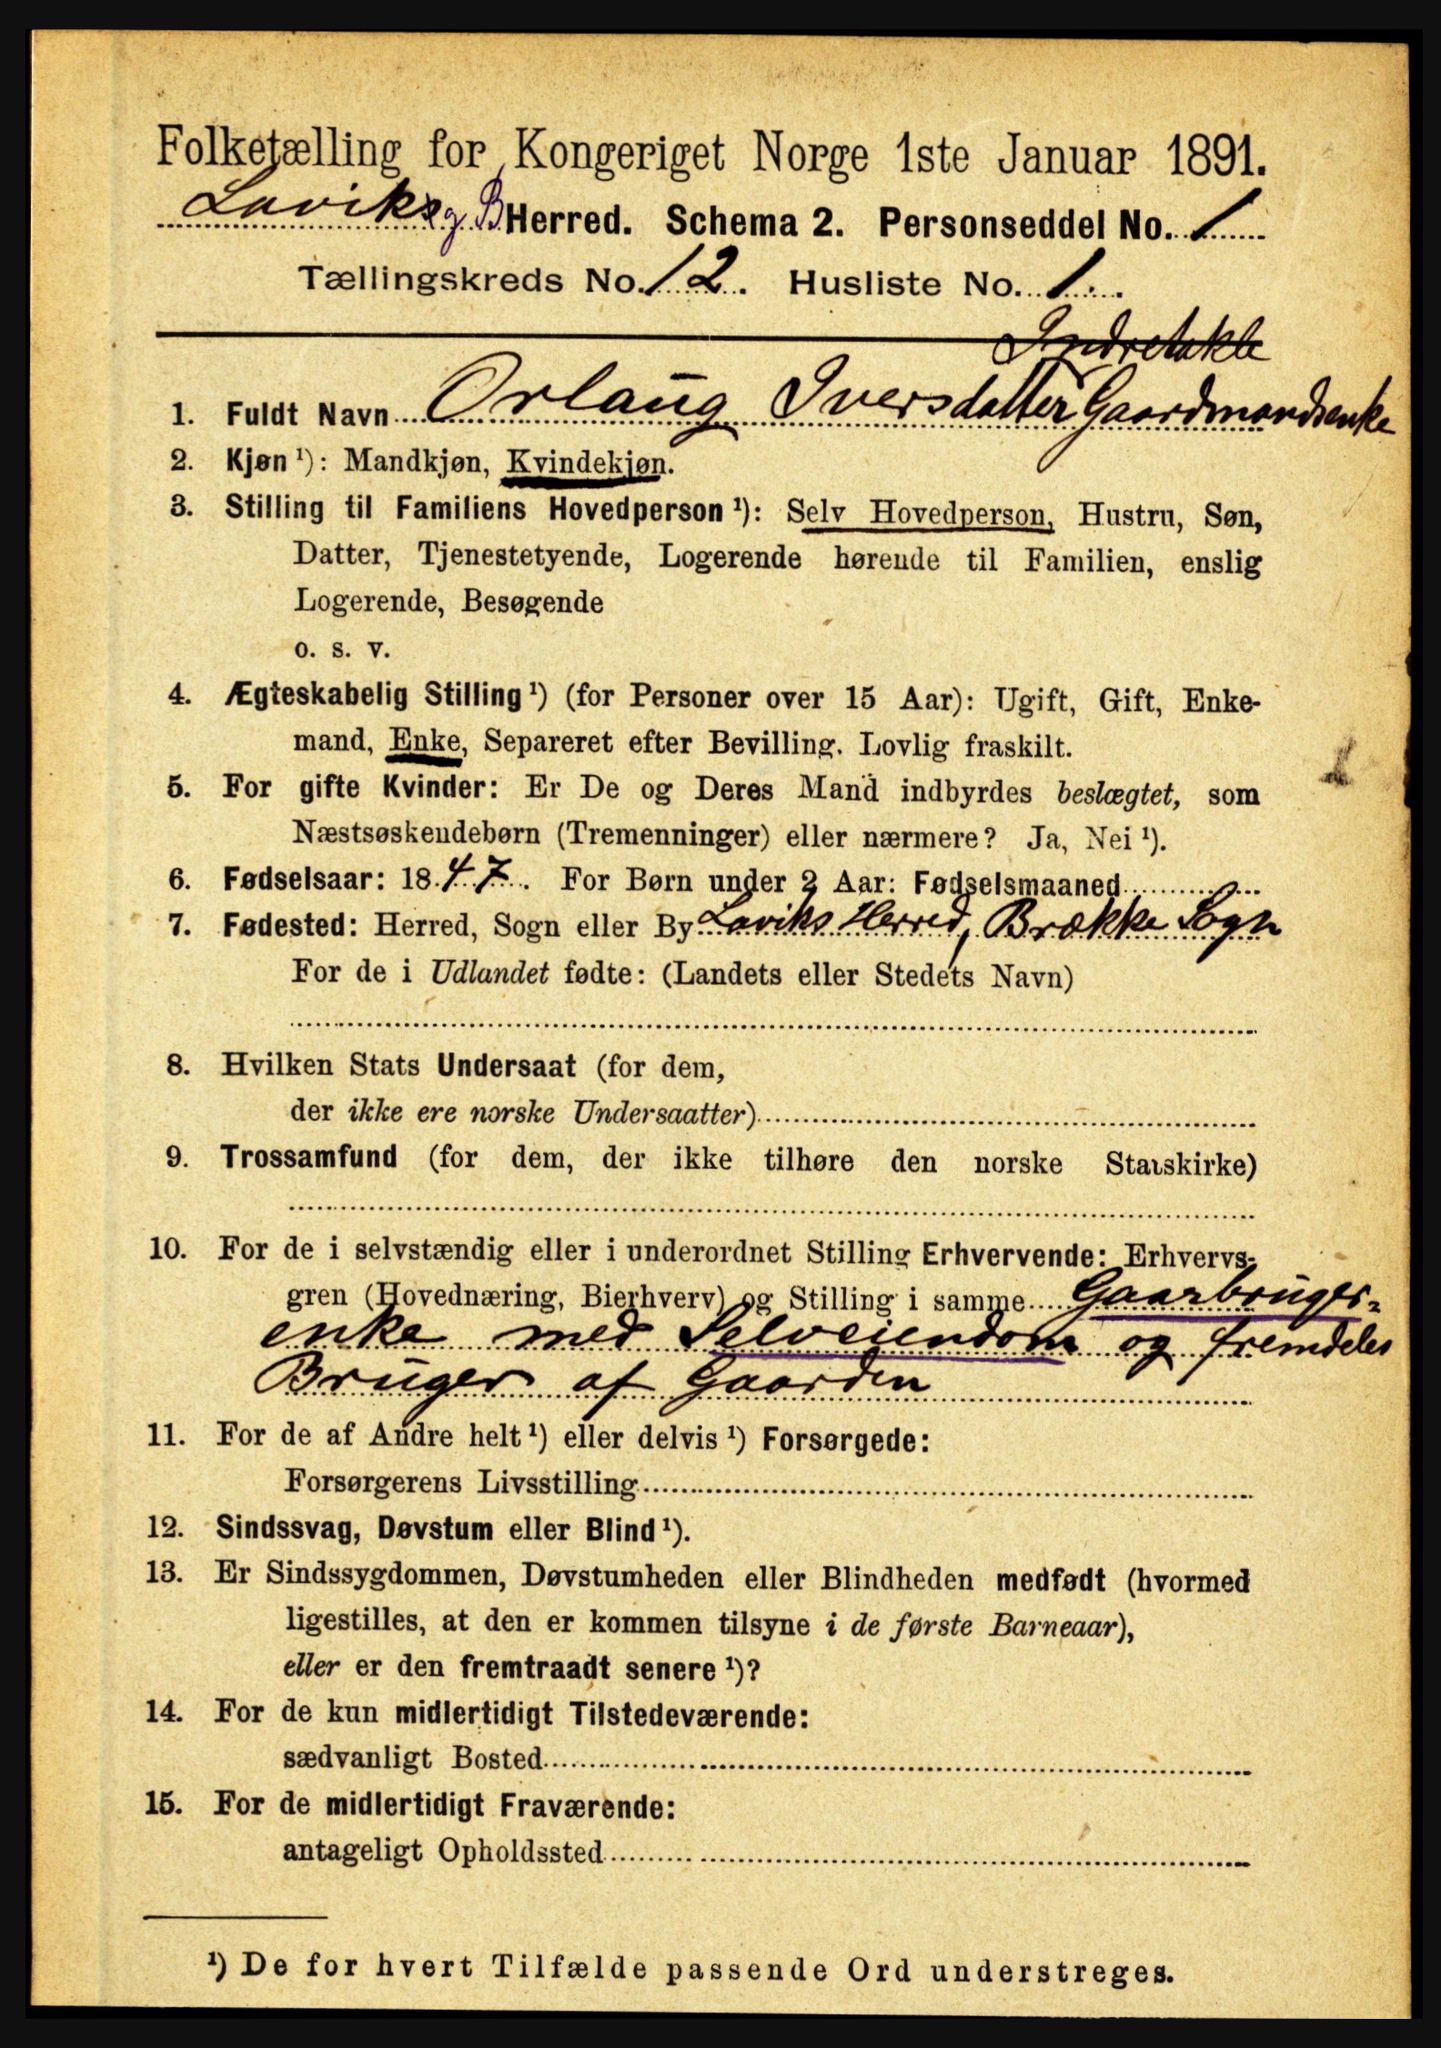 Folketælling for Kongeriget Norge 1ste Januar 1891.
Laviks og B Herred. Schema 2. Personseddel No. 1
Tællingskreds No. 12. Husliste No. 1.
Indretakle
1. Fuldt Navn Orlaug Iversdatter Gaardmandsenke
2. Kjøn ¹): Mandkjøn, Kvindekjøn.
3. Stilling til Familiens Hovedperson ¹): Selv Hovedperson, Hustru, Søn,
Datter, Tjenestetyende, Logerende hørende til Familien, enslig
Logerende, Besøgende
o. s. v.
4. Ægteskabelig Stilling ¹) (for Personer over 15 Aar): Ugift, Gift, Enke-
mand, Enke, Separeret efter Bevilling. Lovlig fraskilt.
5. For gifte Kvinder: Er De og Deres Mand indbyrdes beslægtet, som
Næstsøskendebørn (Tremenninger) eller nærmere? Ja, Nei ¹).
6. Fødselsaar: 1847. For Børn under 2 Aar: Fødselsmaaned
7. Fødested: Herred, Sogn eller By Laviks Herred, Brække Sogn
For de i Udlandet fødte: (Landets eller Stedets Navn)
8. Hvilken Stats Undersaat (for dem,
der ikke ere norske Undersaatter)
9. Trossamfund (for dem, der ikke tilhøre den norske Statskirke)
10. For de i selvstændig eller i underordnet Stilling Erhvervende: Erhvervs-
gren (Hovednæring, Bierhverv) og Stilling i samme Gaarbruger-
enke med Selveiendom og fremdeles
Bruger af Gaarden
11. For de af Andre helt ¹) eller delvis ¹) Forsørgede:
Forsørgerens Livsstilling
12. Sindssvag, Døvstum eller Blind ¹).
13. Er Sindssygdommen, Døvstumheden eller Blindheden medfødt (hvormed
ligestilles, at den er kommen tilsyne i de første Barneaar),
eller er den fremtraadt senere ¹)?
14. For de kun midlertidigt Tilstedeværende:
sædvanligt Bosted
15. For de midlertidigt Fraværende:
antageligt Opholdssted
¹) De for hvert Tilfælde passende Ord understreges.